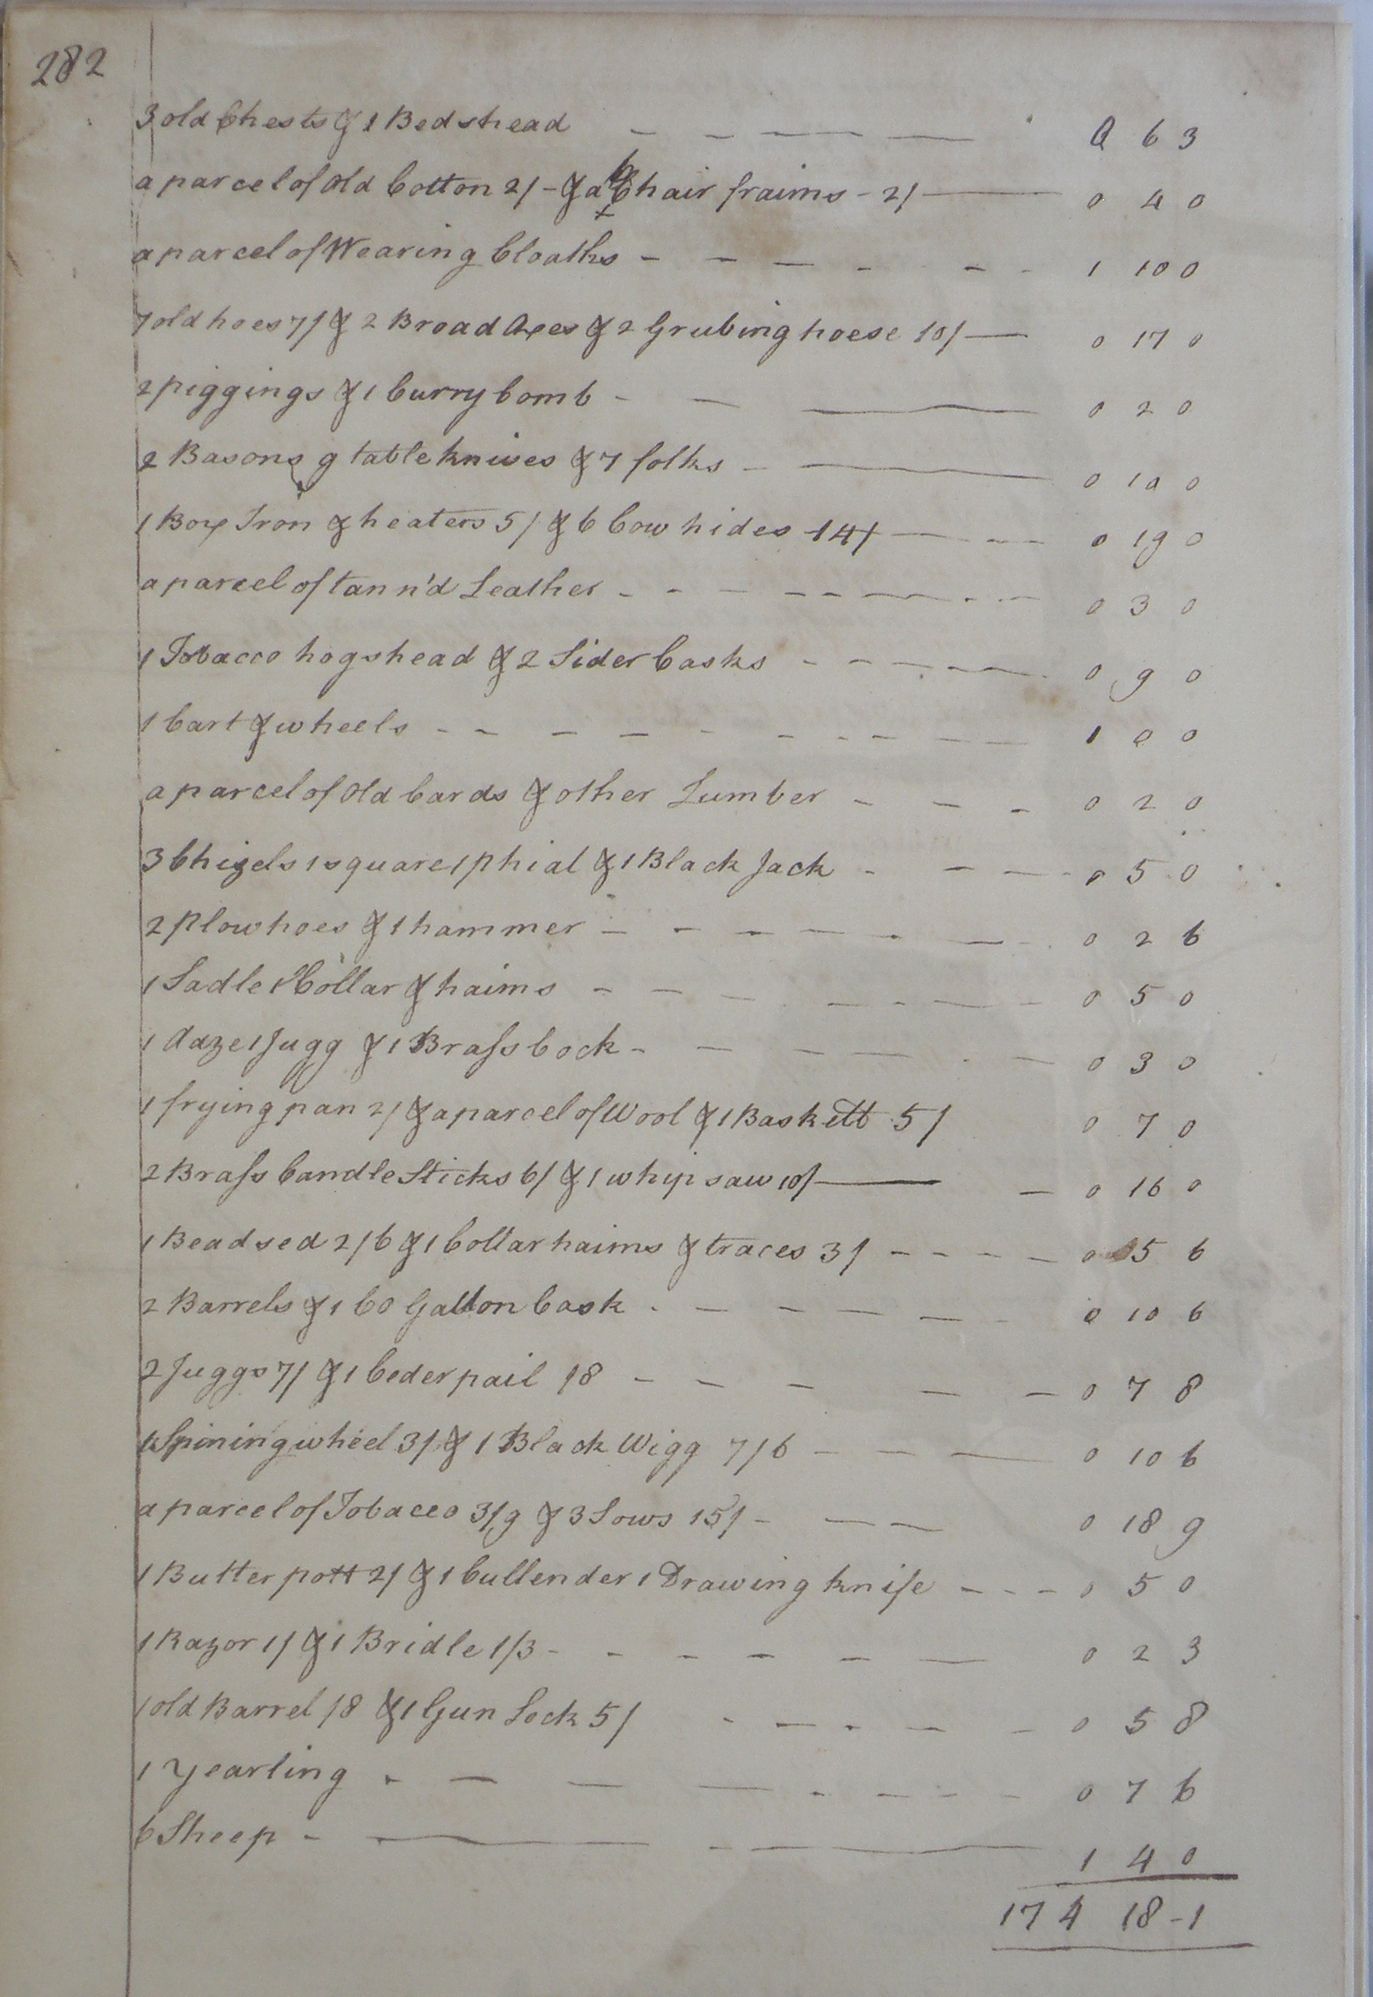 282
3 old Chests & 1 Bedshead 0 6 3
a parcel of old Cotton 2/- & a 6 Chair fraims - 2/ 0 4 0
a parcel of Wearing Cloaths 1 10 0
7 old hoes 7/ & 2 Broad Axes & 2 Grubing hoese 10/ 0 17 0
2 piggings & 1 Curry Comb 0 2 0
2 Basons 9 table knives & 7 folks 0 10 0
1 Box Iron & heaters 5/ & 6 Cow hides 14/ 0 19 0
a parcel of tann'd Leather 0 3 0
1 Tobacco hogshead & 2 Sider Casks 0 9 0
1 Cart & wheels 1 0 0
a parcel of old Cards & other Lumber 0 2 0
3 Chizels 1 square 1 phial & 1 Black Jack 0 5 0
2 Plow hoes & 1 hammer 0 2 6
1 Sadle 1 Collar & haims 0 5 0
1 Adze 1 Jugg & 1 Brass Cock 0 3 0
1 frying pan 2/ & a parcel of Wool & 1 Baskett 5/ 0 7 0
2 Brass Candle Sticks 6/ & 1 whip saw 10/ 0 16 0
1 Beadsed 2/6 & 1 Collar haims & traces 3/ 0 5 6
2 Barrels & 1 60 Gallon Cask 0 10 6
2 Juggs 7/ & 1 Ceder pail /8 0 7 8
1 Spining wheel 3/ & 1 Black Wigg 7/6 0 10 6
a parcel of Tobacco 3/9 & 3 Sows 15/ 0 18 9
1 Butter pott 2/ & 1 Cullender 1 Drawing knife 0 5 0
1 Razor 1/ & 1 Bridle 1/3 0 2 3
1 old Barrel /8 & 1 Gun Lock 5/ 0 5 8
1 Yearling 0 7 6
6 Sheep 1 4 0
174 18-1